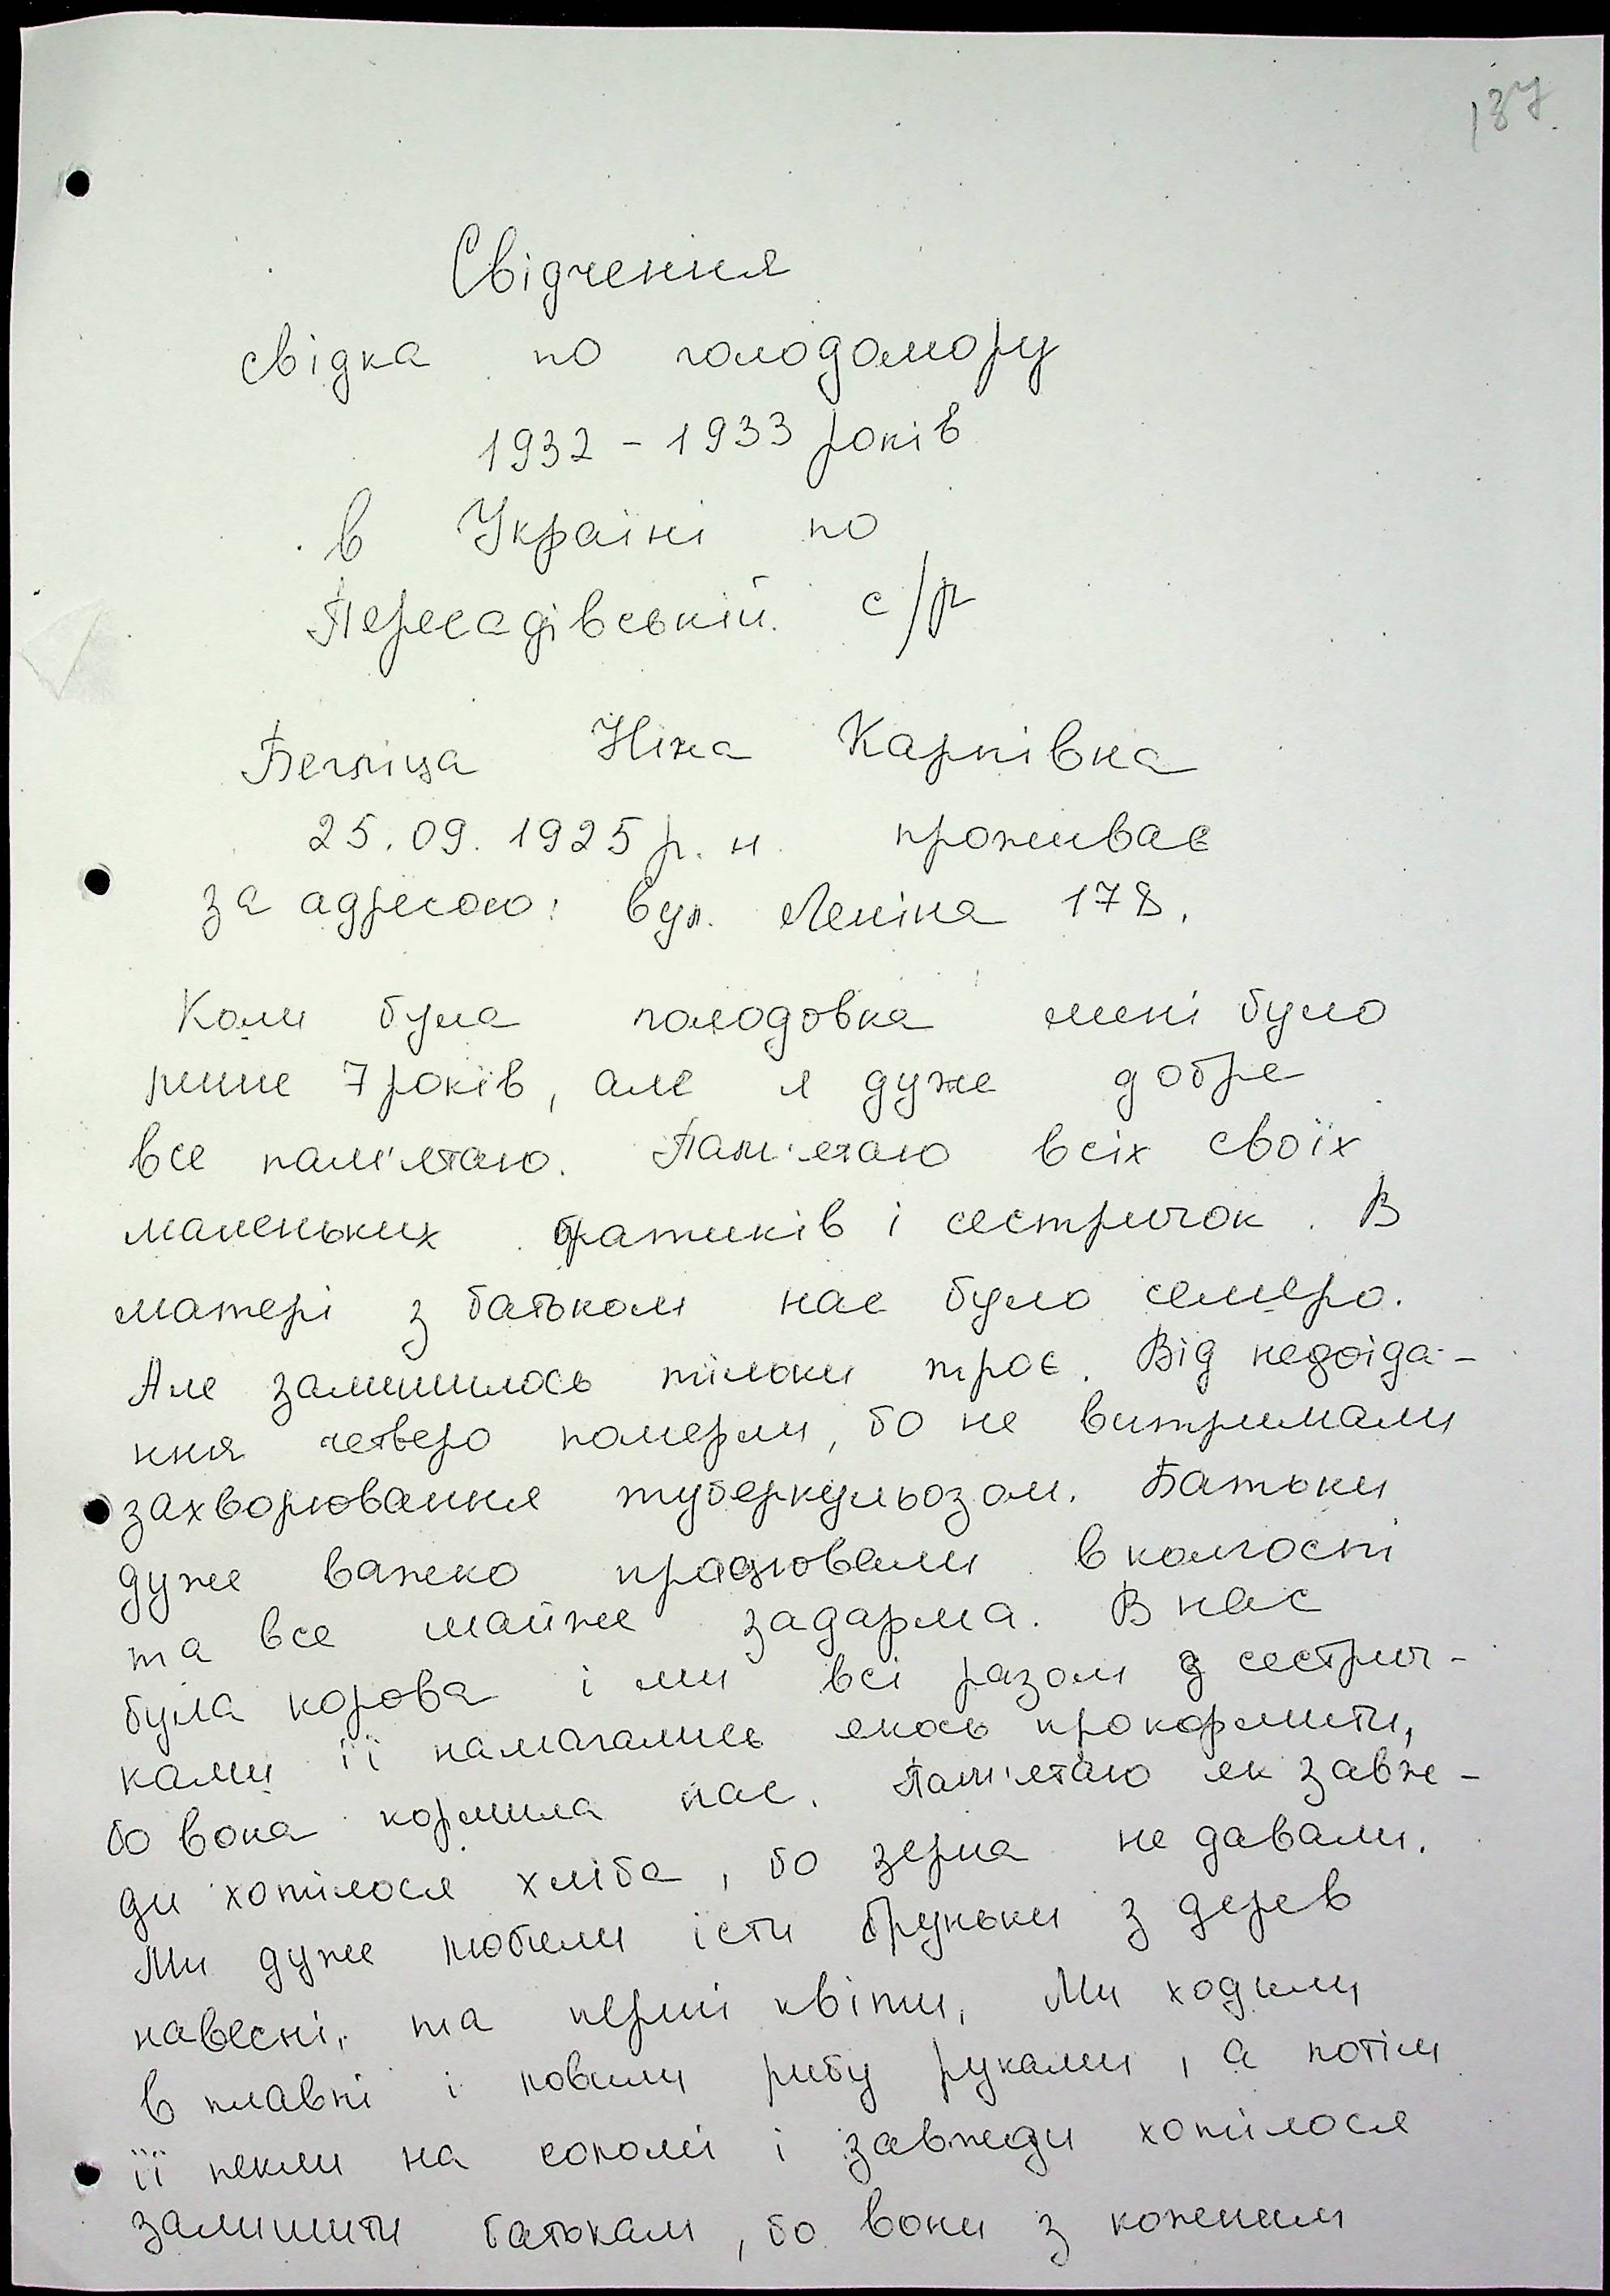 137.
Свідчення
свідка по голодомору
1932 - 1933 років
в Україні по
Пересадівській с/р
Ніна Карпівна
25.09.1925 р. н. проживає
за адресою: вул. Леніна 178.
Коли була голодовка мені було
лише 7 років, але я дуже добре
все пам'ятаю. Пам'ятаю всіх своїх
маленьких братиків і сестричок. В
матері з батьком нас було семеро.
Але залишилось тільки троє. Від недоїда-
ння четверо померли, бо не витримали
захворювання туберкульозом. Батьки
дуже важко працювали в колгоспі
та все майже задарма. В нас
була корова і ми всі разом з сестрич-
ками її намагались якось прокормити,
бо вона кормила нас. Пам'ятаю як завж-
ди хотілося хліба, бо зерна не давали.
Ми дуже любили їсти бруньки з дерев
навесні, та перші квіти. Ми ходили
в плавні і ловили рибу руками, а потім
її пекли на соломі і завжди хотілося
залишити батькам, бо вони з кожним